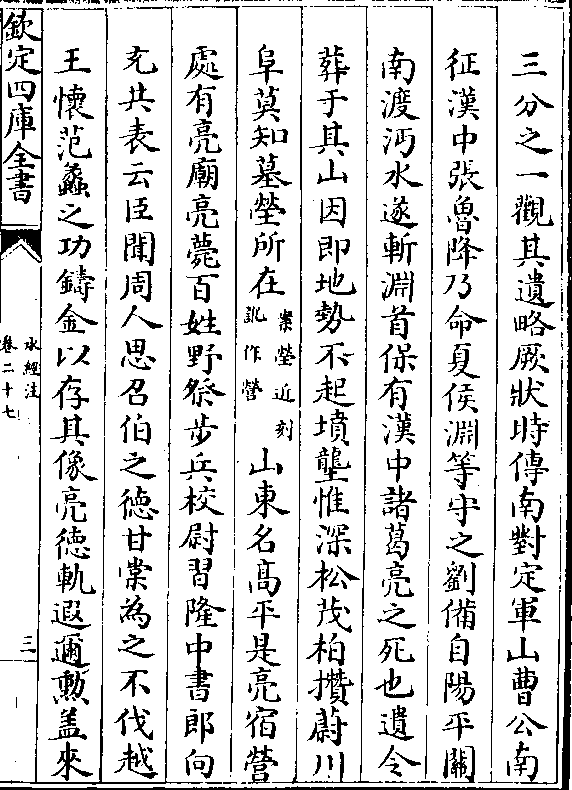 三分之一觀其遺略厥狀時傳南對定軍山曹公南
征漢中張魯降乃命夏侯淵等守之劉備自陽平關
南渡沔水遂斬淵首保有漢中諸葛亮之死也遺令
葬于其山因即地勢不起墳壟惟深松茂柏攢蔚川
阜莫知墓塋所在案塋近刻訛作營山東名髙平是亮宿營
處有亮廟亮薨百姓野祭步兵校尉習隆中書郎向
充共表云臣聞周人思召伯之徳甘棠為之不伐越
王懷范蠡之功鑄金以存其像亮徳軌遐邇勲盖來
欽定四庫全書
水經注
卷二十七
三